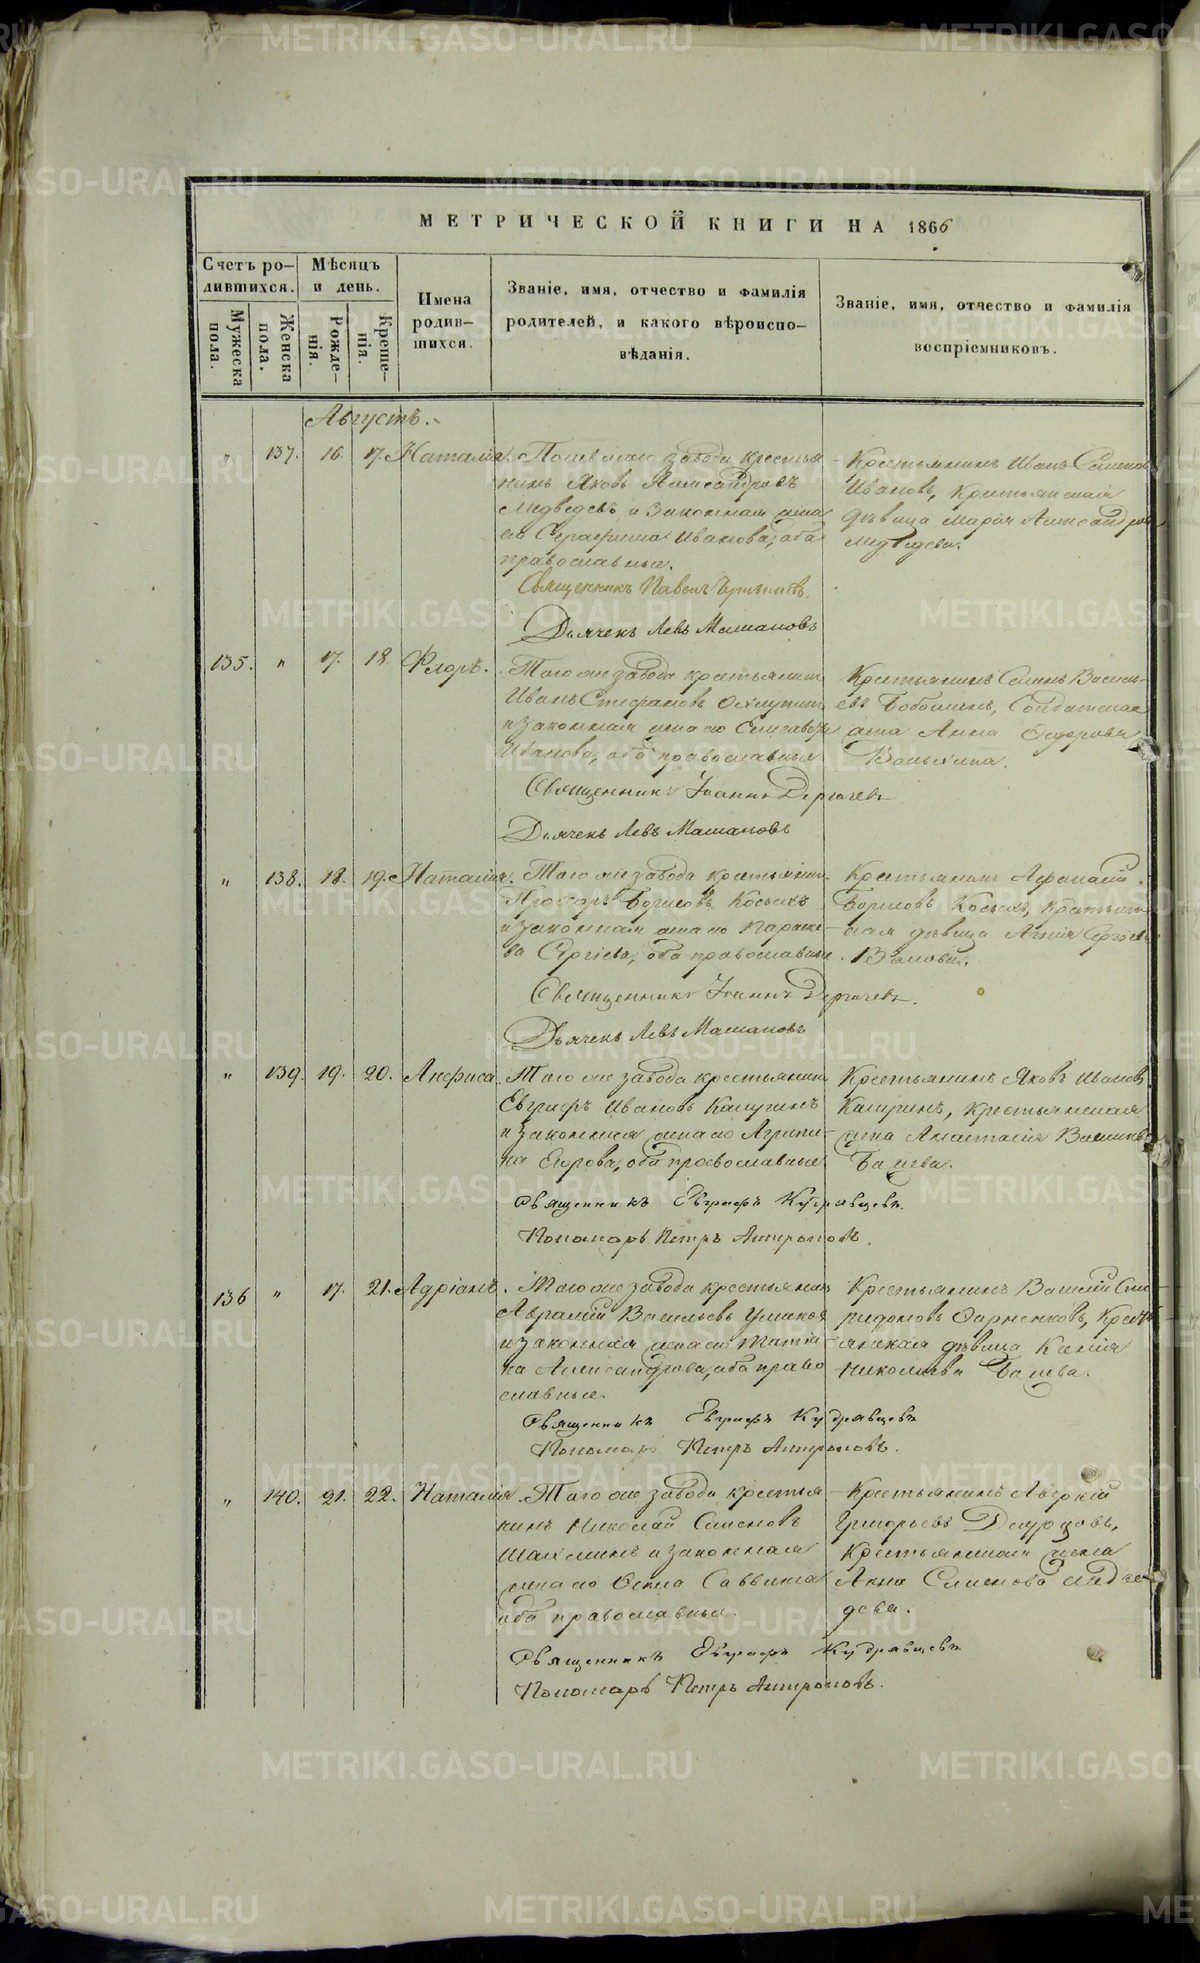 МЕТРИЧЕСКОЙ КНИГИ НА 1866
Счетъ ро-
дившихся.
Мѣсяцъ
и день.
Мужеска
пола.
Женска
пола.
Рожде-
нія.
Креще-
нія.
Имена
родив-
шихся.
Званіе, имя, отчество и фамилія
родителей, и какого вѣроиспо-
вѣданія.
Званіе, имя, отчество и фамилія
воспріемниковъ.
Августъ.
" 137. 16. 17. Наталія.
завода крестья
нинъ Яковъ Александровъ
Медведевъ и законная жена
его Серафима Иванова, оба
православные.
Священникъ Павелъ
Дьячекъ Левъ Машановъ
Крестьянинъ Иванъ Семеновъ
Ивановъ, крестьянская
дѣвица Марія Александрова
Медведева.
135. " 17. 18. Флоръ.
Того же завода крестьянинъ
Иванъ Стефановъ
и законная жена его Елисавета
Иванова, оба православные
Священникъ Іоаннъ Дергачевъ
Дьячекъ Левъ Машановъ
Крестьянинъ Семенъ Василь-
евъ Солдатская
жена Анна Федорова
" 138. 18. 19. Наталія.
Того же завода крестьянинъ
Прохоръ Борисовъ Косыхъ
и законная жена его Параске-
ва Сергіева, оба православные.
Священникъ Іоаннъ Дергачевъ.
Дьячекъ Левъ Машановъ
Крестьянинъ Афанасій
Борисовъ Косыхъ, крестьян-
ская дѣвица Сергіева
" 139. 19. 20. Анфиса.
Того же завода крестьянинъ
Евграфъ Ивановъ Кашринъ
и законная жена его Агрипи-
на Егорова, оба православные.
Священникъ Евграфъ Кудрявцевъ.
Пономарь Петръ Антроповъ.
Крестьянинъ Яковъ Ивановъ
Кашринъ, крестьянская
жена Анастасія Васильева
136 " 17. 21. Адріанъ.
Того же завода крестьянинъ
Аврамій Васильевъ
и законная жена его Татіа-
на Александрова, оба право
славные.
Священникъ Евграфъ Кудрявцевъ
Пономарь Петръ Антроповъ.
Крестьянинъ Василій Спи
ридоновъ кресть
янская дѣвица Ксенія
Николаева
" 140. 21. 22. Наталія.
Того же завода крестья
нинъ Николай Семеновъ
и законная
жена его Саввина
оба православные.
Священникъ Евграфъ Кудрявцевъ
Пономарь Петръ Антроповъ.
Крестьянинъ Аверкій
Григорьевъ
Крестьянская жена
Анна Семенова
METRIKI.GASO-URAL.RU